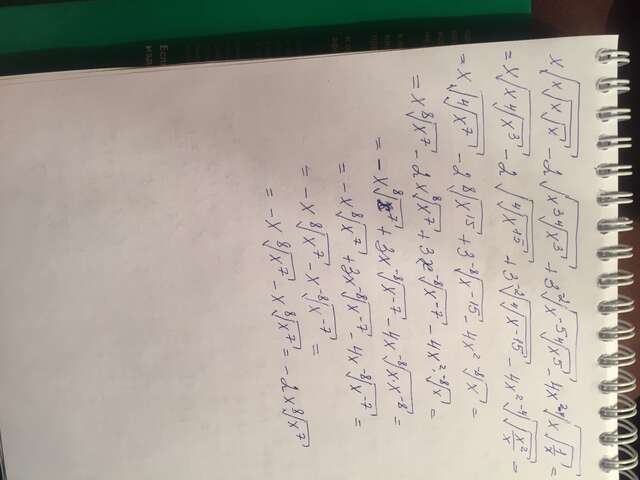 x√x√x√x - 2√x³√x³ + 3 ⁻²√x⁻⁵√x⁵ - 4x√x ⁻²√1/x =
= x√x ⁴√x³ - 2√⁴√x¹⁵ + 3 ⁻²√⁴√x⁻¹⁵ - 4x² ⁻⁴√x²/x =
= x√⁴√x⁷ - 2 ⁸√x¹⁵ + 3 ⁻⁸√x⁻¹⁵ - 4x² ⁻⁸√x =
= x ⁸√x⁷ - 2x ⁸√x⁷ + 3x ⁻⁸√x⁻⁷ - 4x² ⁻⁸√x =
= -x ⁸√x⁷ + 3x ⁻⁸√x⁻⁷ - 4x ⁻⁸√x·x⁻⁸ =
= -x ⁸√x⁷ + 3x ⁻⁸√x⁻⁷ - 4x ⁻⁸√x⁻⁷ =
= -x ⁸√x⁷ - x ⁻⁸√x⁻⁷ =
= -x ⁸√x⁷ - x ⁸√x⁷ = -2x ⁸√x⁷